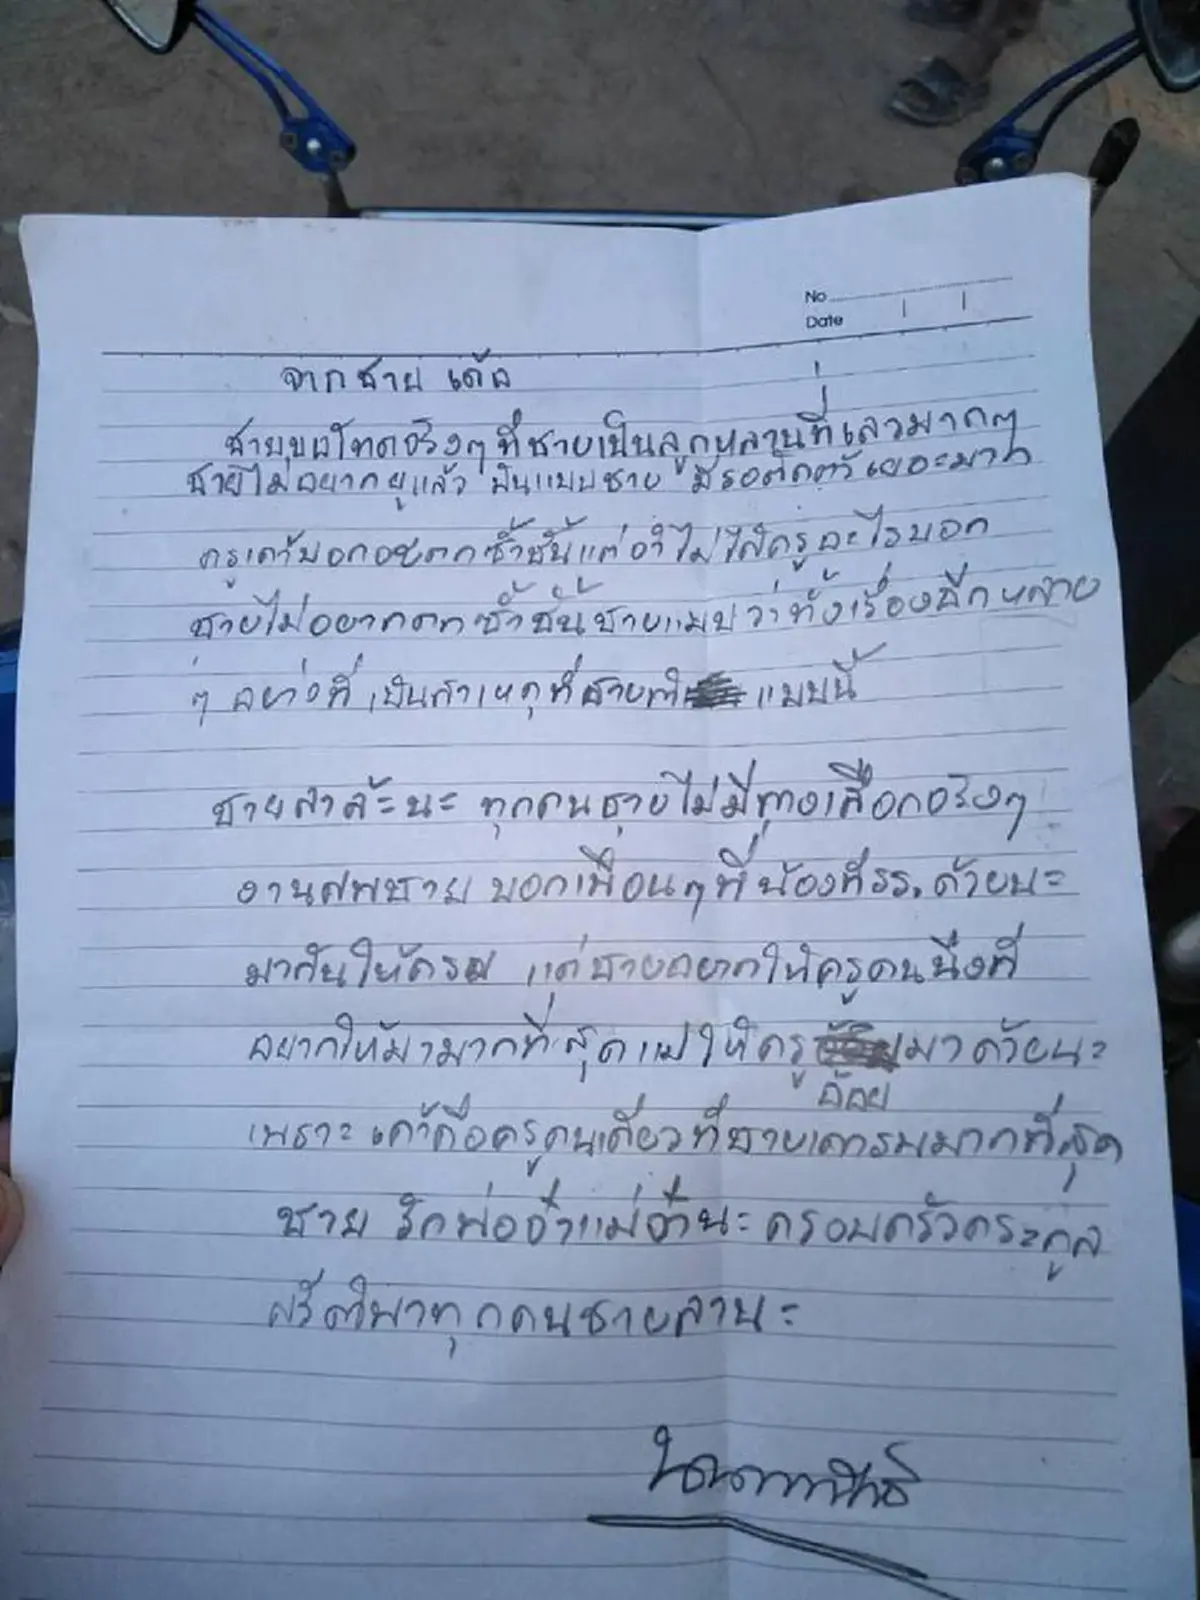 No
Date
จากชาย เด้อ
ชายขอโทดจริงๆ ที่ชายเป็นลูกหลานที่เลวมากๆ
ชายไม่อยากยูแล้ว มันแบบชาย มีรอตัดตัวเยอะมาก
ครูเค้าบอกอยตกซ้ำชั้นแต่ถ้าไม่ใส่ครูอะไรบอก
ชายไม่อยากตกซ้ำชั้นชายแบบว่าทั้งเรื่องอีกหลาย
ๆ อย่างที่ เป็นสาเหตุที่ชาย แบบนี้
ชายลาล้ะนะ ทุกคนชายไม่มีทางเลือกจริงๆ
งานศพชาย บอกเพื่อนๆพี่น้องที่รร.ด้วยนะ
มากันให้ครบ แต่ชายอยากให้ครูคนนึงที่
อยากให้มามากที่สุด แม่ให้ครู มาด้วยนะ
อ้อย
เพราะเค้าคือครูคนเดียวที่ชายเคารพมากที่สุด
ชาย รักพ่อจ๋าแม่จ๋านะครอบครัวตระกูล
ทุกคนชายลานะ